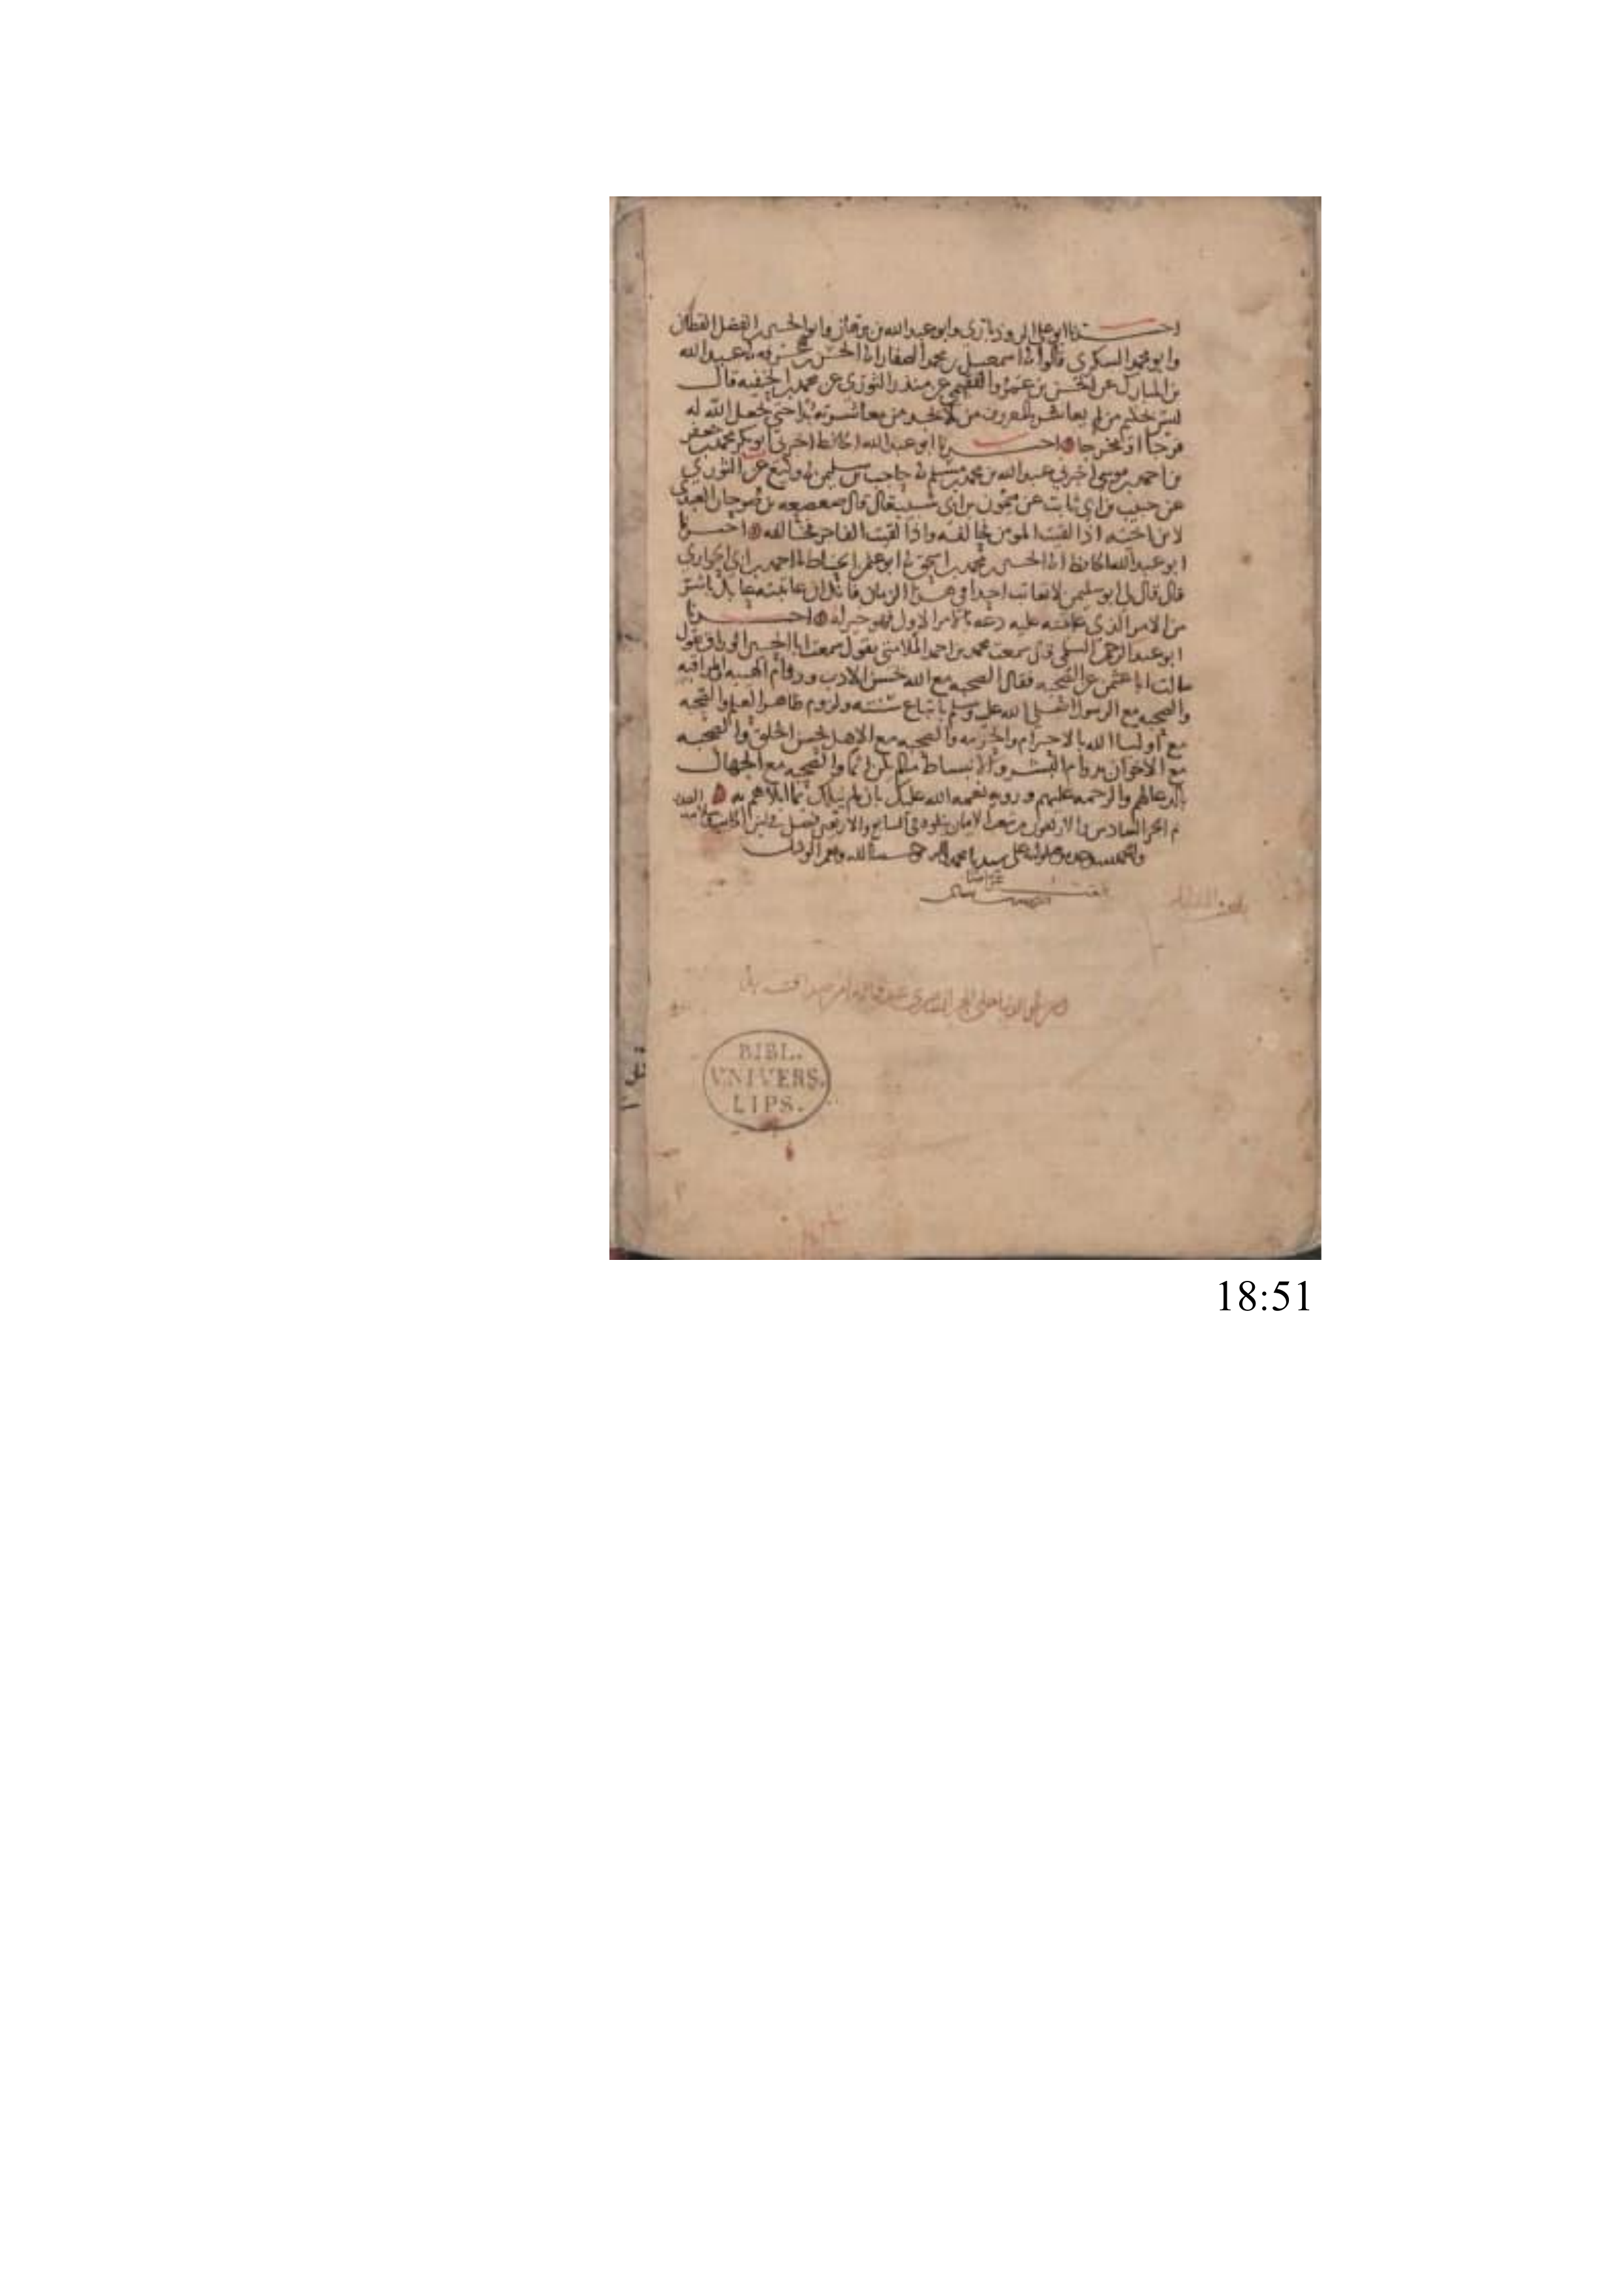 اخبرنا ابو علي الروذباري وابو عبد الله بن برهان وابو الحسين الفضل القطان
وابو محمد السكري قالوا انا اسمعيل بن محمد الصفار انا الحسن بن عرفه نا عبد الله
بن المبارك عن الحسن بن عمرو الفقيمي عن منذر الثوري عن محمد بن الحنفيه قال
ليس حكيم من لم يعاشر بالمعروف من لا يجد من معاشرته بدا حتى يجعل الله له
فرجا او مخرجا اخبرنا ابو عبد الله الحافظ اخبرني ابو بكر محمد بن جعفر
بن احمد بن موسى اخبرني عبد الله بن محمد بن مسلم نا حاجب بن سليمن نا وكيع عن الثوري
عن حبيب بن ابي ثابت عن ميمون بن ابي شبيب قال قال صعصعه بن صوحان العبدي
لابن اخته اذا لقيت المومن فخالقه واذا لقيت الفاجر فخالفه اخبرنا
ابو عبد الله الحافظ انا الحسن بن محمد بن اسحق نا ابو عثمن الخياط نا احمد بن ابي الحواري
قال قال لي ابو سليمن لا تعاتب احدا في هذا الزمان فانك ان عاتبته عابك باشر
من الامر الذي عاتبته عليه دعه بالامر الاول فهو خير له اخبرنا
ابو عبد الرحمن السلمي قال سمعت محمد بن احمد الملامتي يقول سمعت ابا الحسين الوراق يقول
سالت ابا عثمن عن الصحبه فقال الصحبه مع الله بحسن الادب ودوام الهيبه والمراقبه
والصحبه مع الرسول صلى الله عليه وسلم باتباع سنته ولزوم ظاهر العلم والصحبه
مع اوليا الله بالاحترام والحرمه والصحبه مع الاهل بحسن الخلق والصحبه
مع الاخوان بدوام البشر والانبساط ما لم يكن اثما والصحبه مع الجهال
بالدعا لهم والرحمه عليهم وروية نعمه الله عليك بان لم يبتلك بما ابتلاهم به
تم الجزء السادس والاربعون من شعب الايمان يتلوه في السابع والاربعين فصل
والحمد لله وحده وصلواته على سيدنا محمد واله حسبنا الله ونعم الوكيل
BIBL.
VNIVERS.
LIPS.
18:51